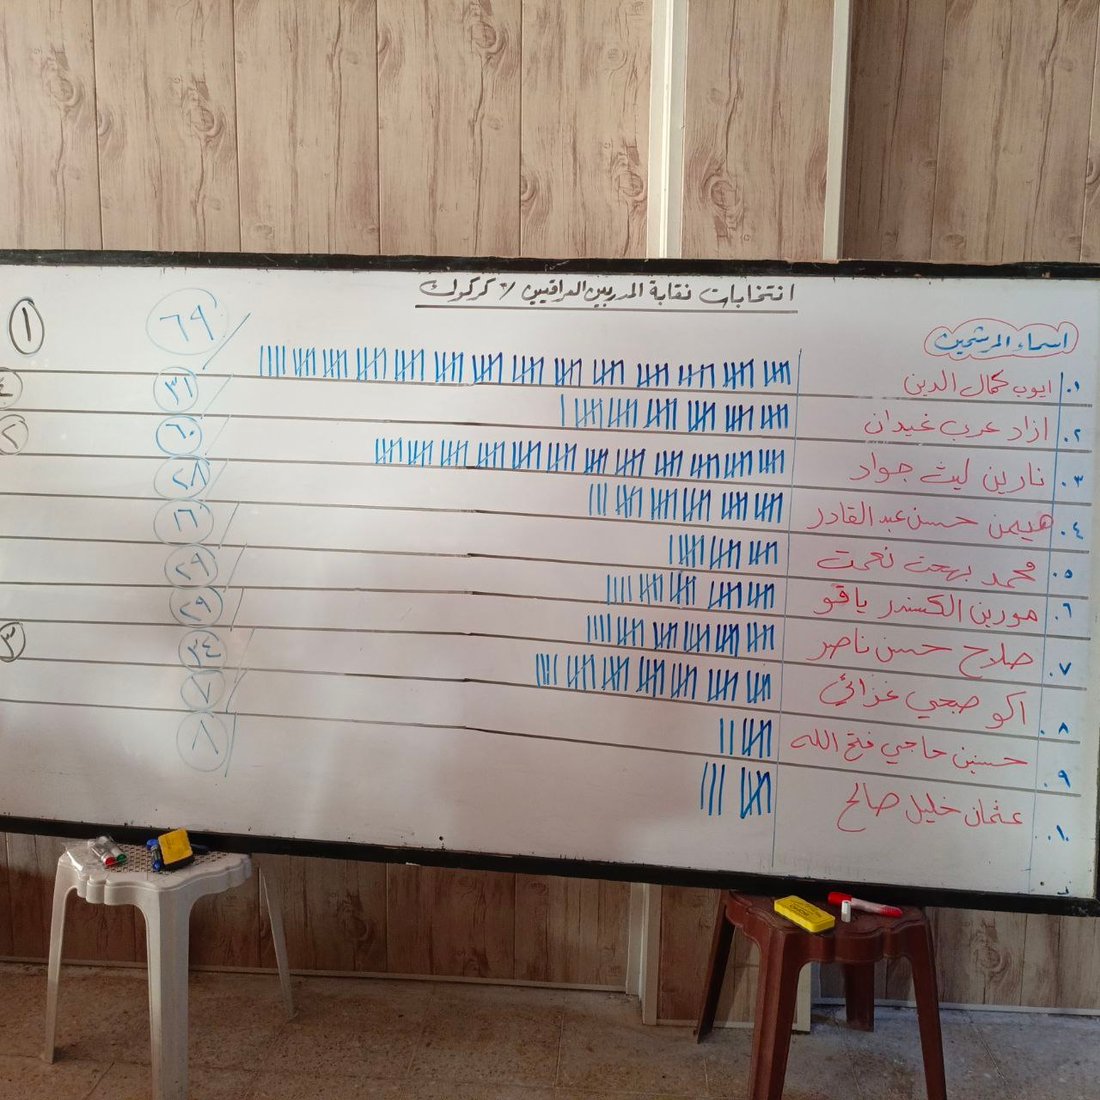 انتخابات نقابة المدربين العراقيين / كركوك
اسماء المرشحين
١. ايوب كمال الدين ٦٩ ١
٢. ازاد عرب غيدان ٣١ ٤
٣. نارين ليث جواد ٦٠ ٢
٤. هيمن حسن عبد القادر ٢٨
٥. محمد بهجت نعمت ١٦
٦. مورين الكسندر ياقو ٢٩
٧. صلاح حسن ناصر ٢٩
٨. اكو صبحي غزائي ٣٤ ٣
٩. حسنين حاجي فتح الله ٧
١٠. عثمان خليل صالح ٨